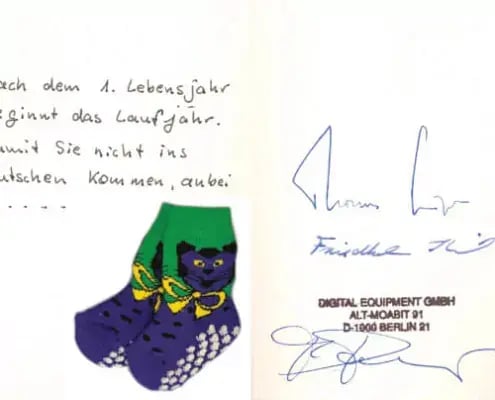 ach dem 1. Lebensjahr
eginnt das Laufjahr.
amit Sie nicht ins
utschen kommen, anbei
. . . . .
Thomas
DIGITAL EQUIPMENT GMBH
ALT-MOABIT 91
D-1000 BERLIN 21